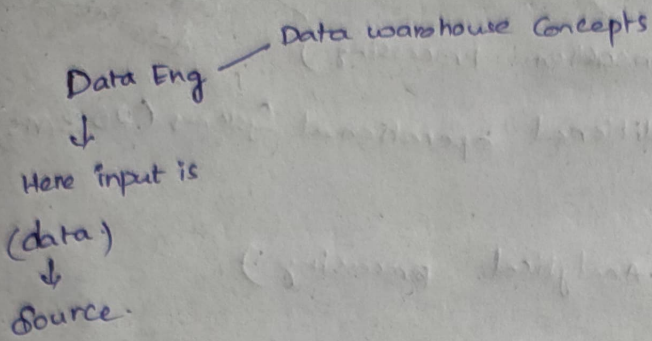 Data warehouse Concepts
Data Eng —
↓
Here input is
(data)
↓
Source.